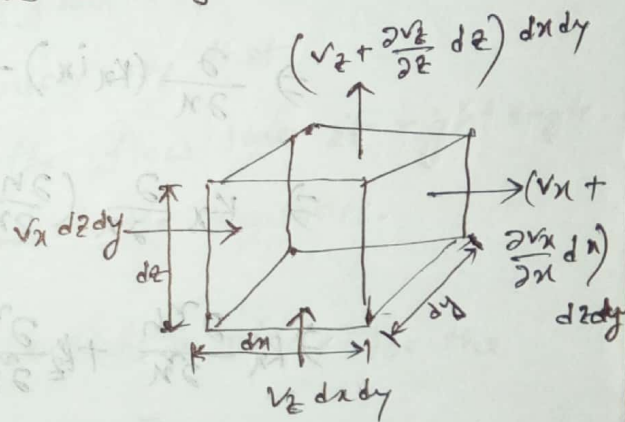 (Vz + ∂Vz/∂z dz) dxdy
Vx dzdy
(Vx +
∂Vx/∂x dx)
dzdy
dz
dx
dy
Vz dxdy